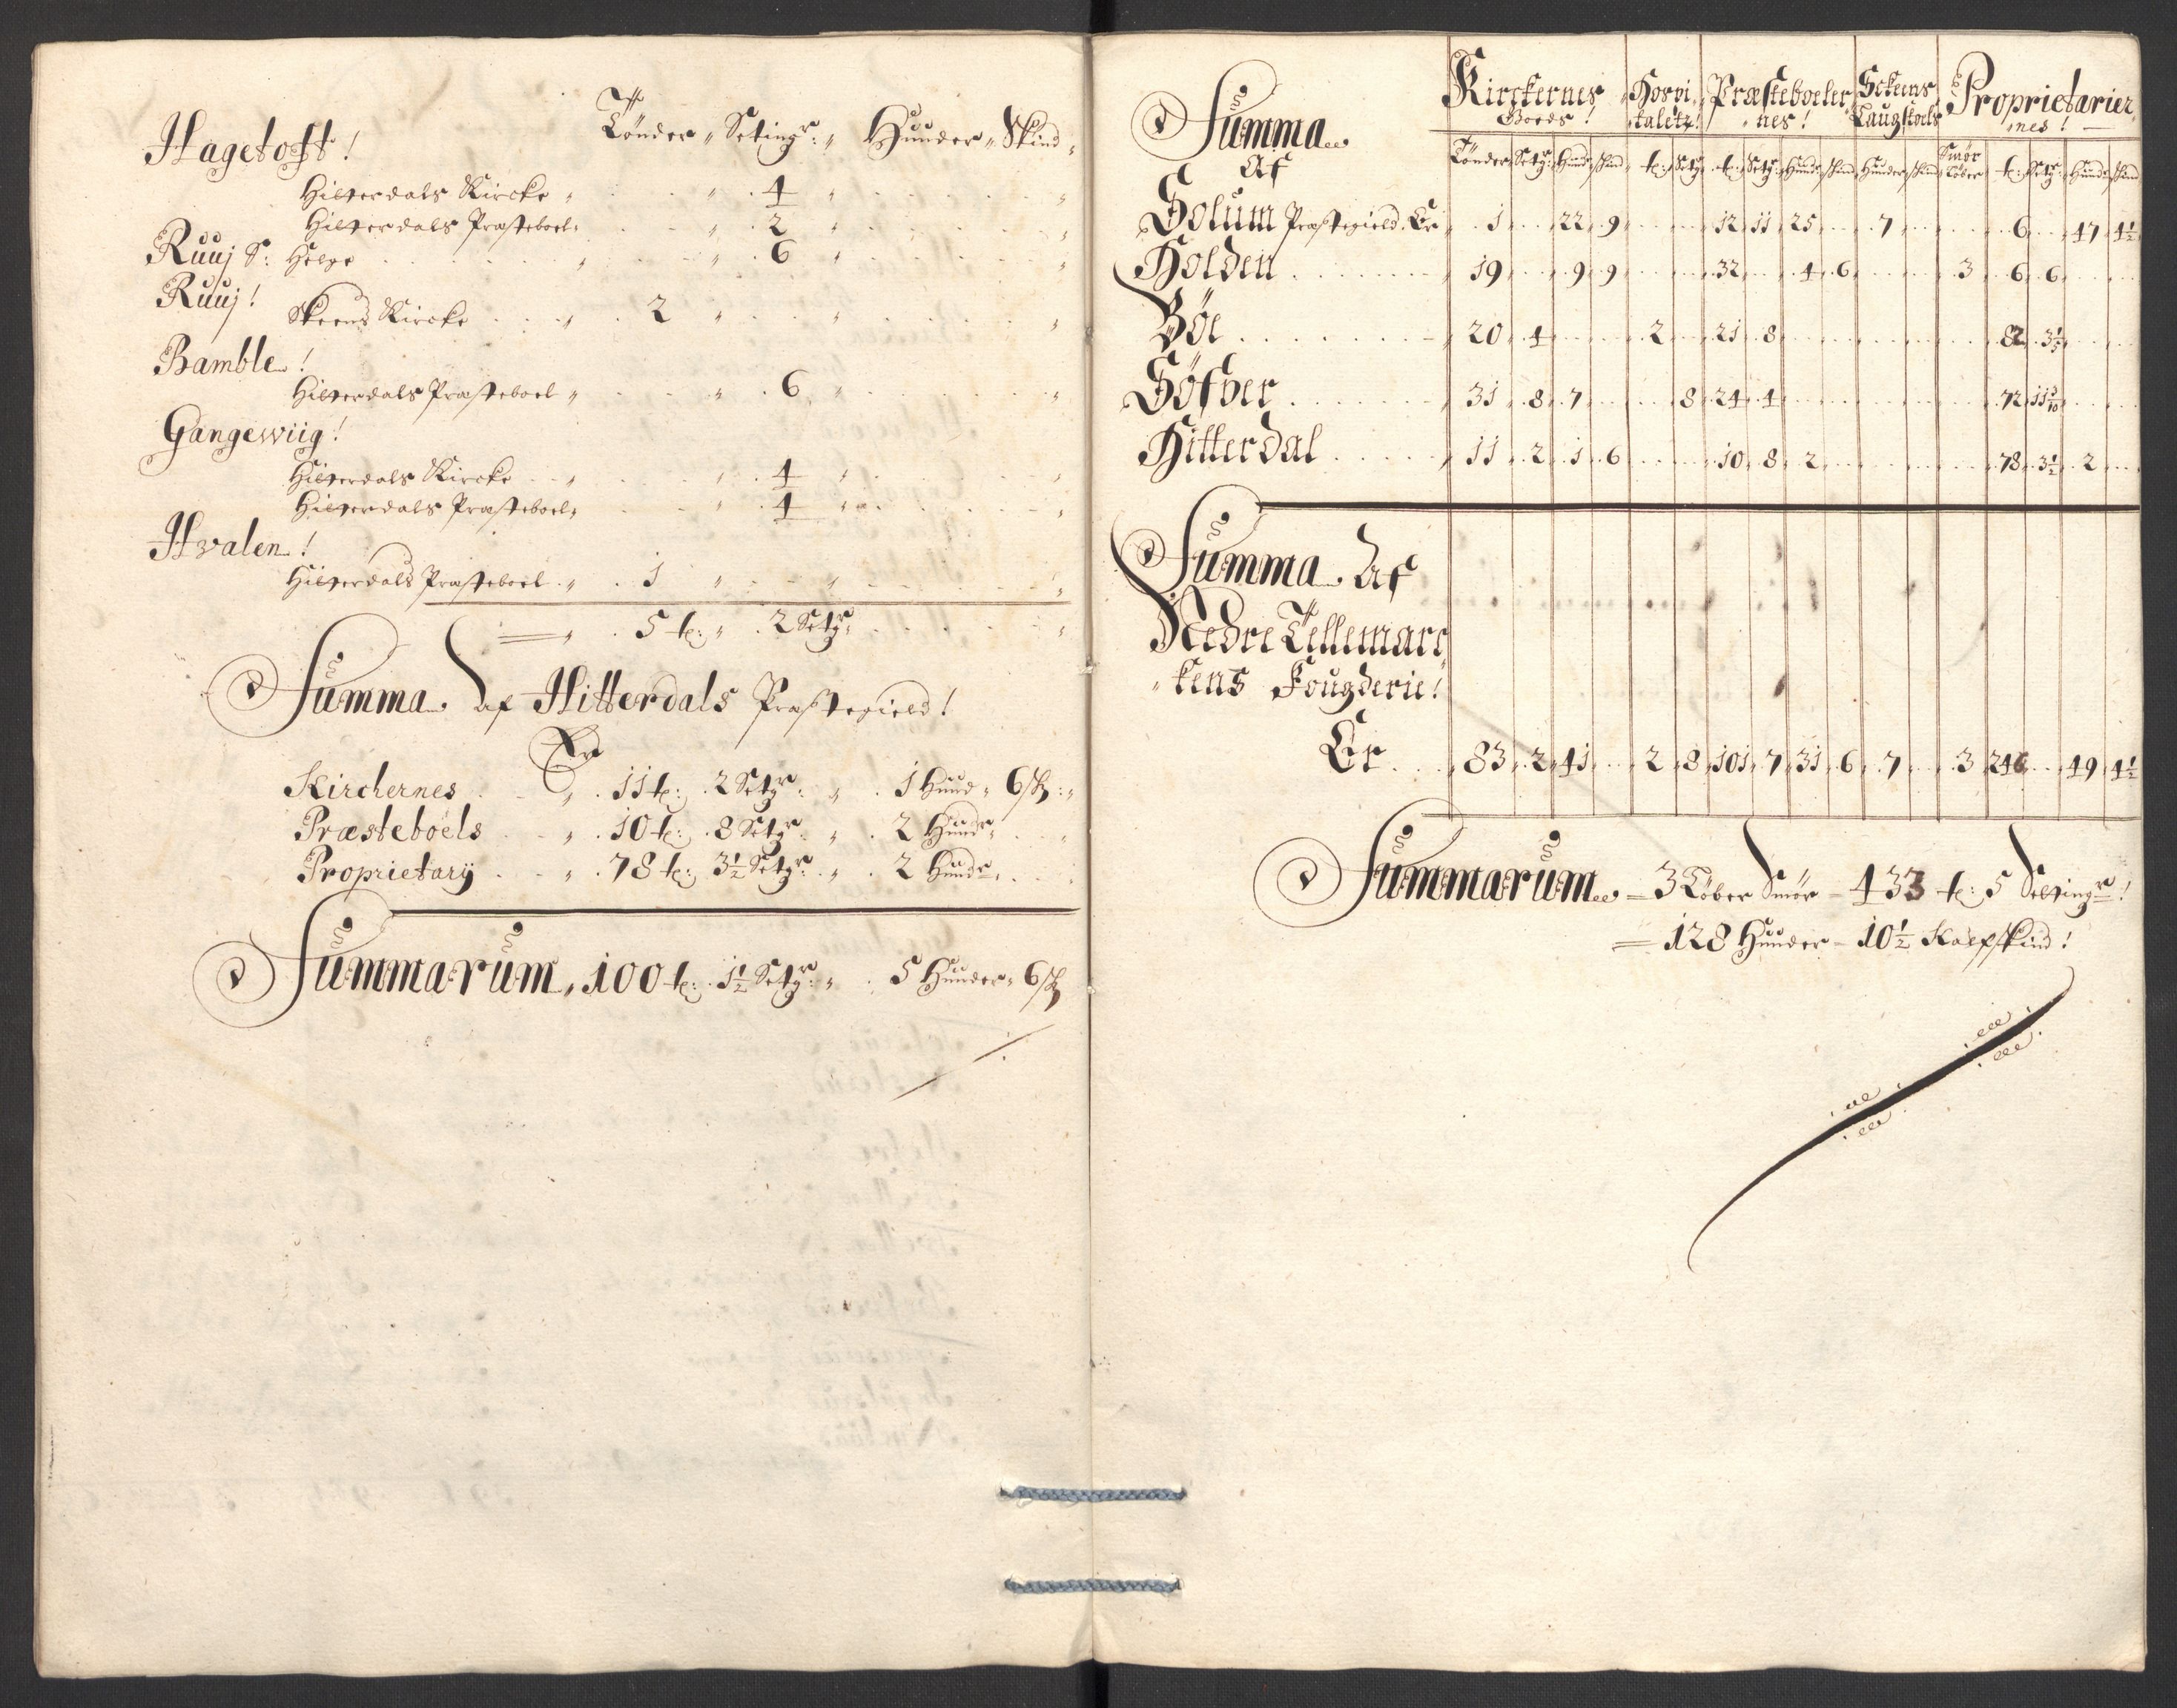 Tønder „ Setingr: „ Hunder „ Skind „
Hagetoft!
Hitterdals Kircke „ 4
Hitterdals Præsteboel „ 2
Ruuj S: Helge 6
Ruuj!
Skeens Kircke 2
Bamble!
Hitterdals Præsteboel „ 6
Gangewiig!
Hitterdals Kircke 4
Hitterdals Præsteboel „ 4
Hvalen!
Hitterdals Præsteboel „ 1
5 t: „ 2 Setgr
Summa Af Hitterdals Præstegield!
Er
Kirchernes „ 11 t: 2 Setgr: „ 1 Hund „ 6 sk:
Præsteboels „ 10 t: 8 Setgr: „ 2 Hundr
Proprietarÿ „ 78 t: 3½ Setgr: „ 2 Hundr
Summarum „ 100 t: 1½ Setgr: „ 5 Hunder „ 6 sk
Kirckernes Goeds! Hospitaletz! Præsteboelernes! Sckeens Laugstoels Proprietariernes!
Summa
Af
Tønder Setgr: Hund: skind t: Setgr t: Setgr: Hund: skind Hunder skind Smør Løber t: Setgr: Hund: skind
Solum Præstegield. Er 1 22 9 12 11 25 7 6 47 4½
Holden 19 9 9 32 4 6 3 6 6
Böe 20 4 2 21 8 82 3⅕
Söfver 31 8 7 8 24 4 72 11 3/10
Hitterdal 11 2 1 6 10 8 2 78 3½ 2
Summa Af
Nedre Tellemarc
„kens Fougderie!
Er 83 2 41 2 8 101 7 31 6 7 3 246 49 4½
Summarum = 3 Løber Smör = 433 t: 5 Settingr!
= 128 Hunder = 10½ Kalfskind!